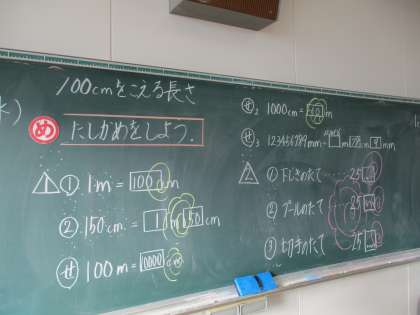 100cmをこえる長さ
め たしかめをしよう.
① 1m = 100cm
② 150cm = 1m50cm
せ 100m = 10000cm
せ2 1000cm = 10m
せ3 123456789mm = m 78cm 9mm
① 下じきのたて … 25cm
② プールのたて … 25m
③ 切手のたて … 25mm